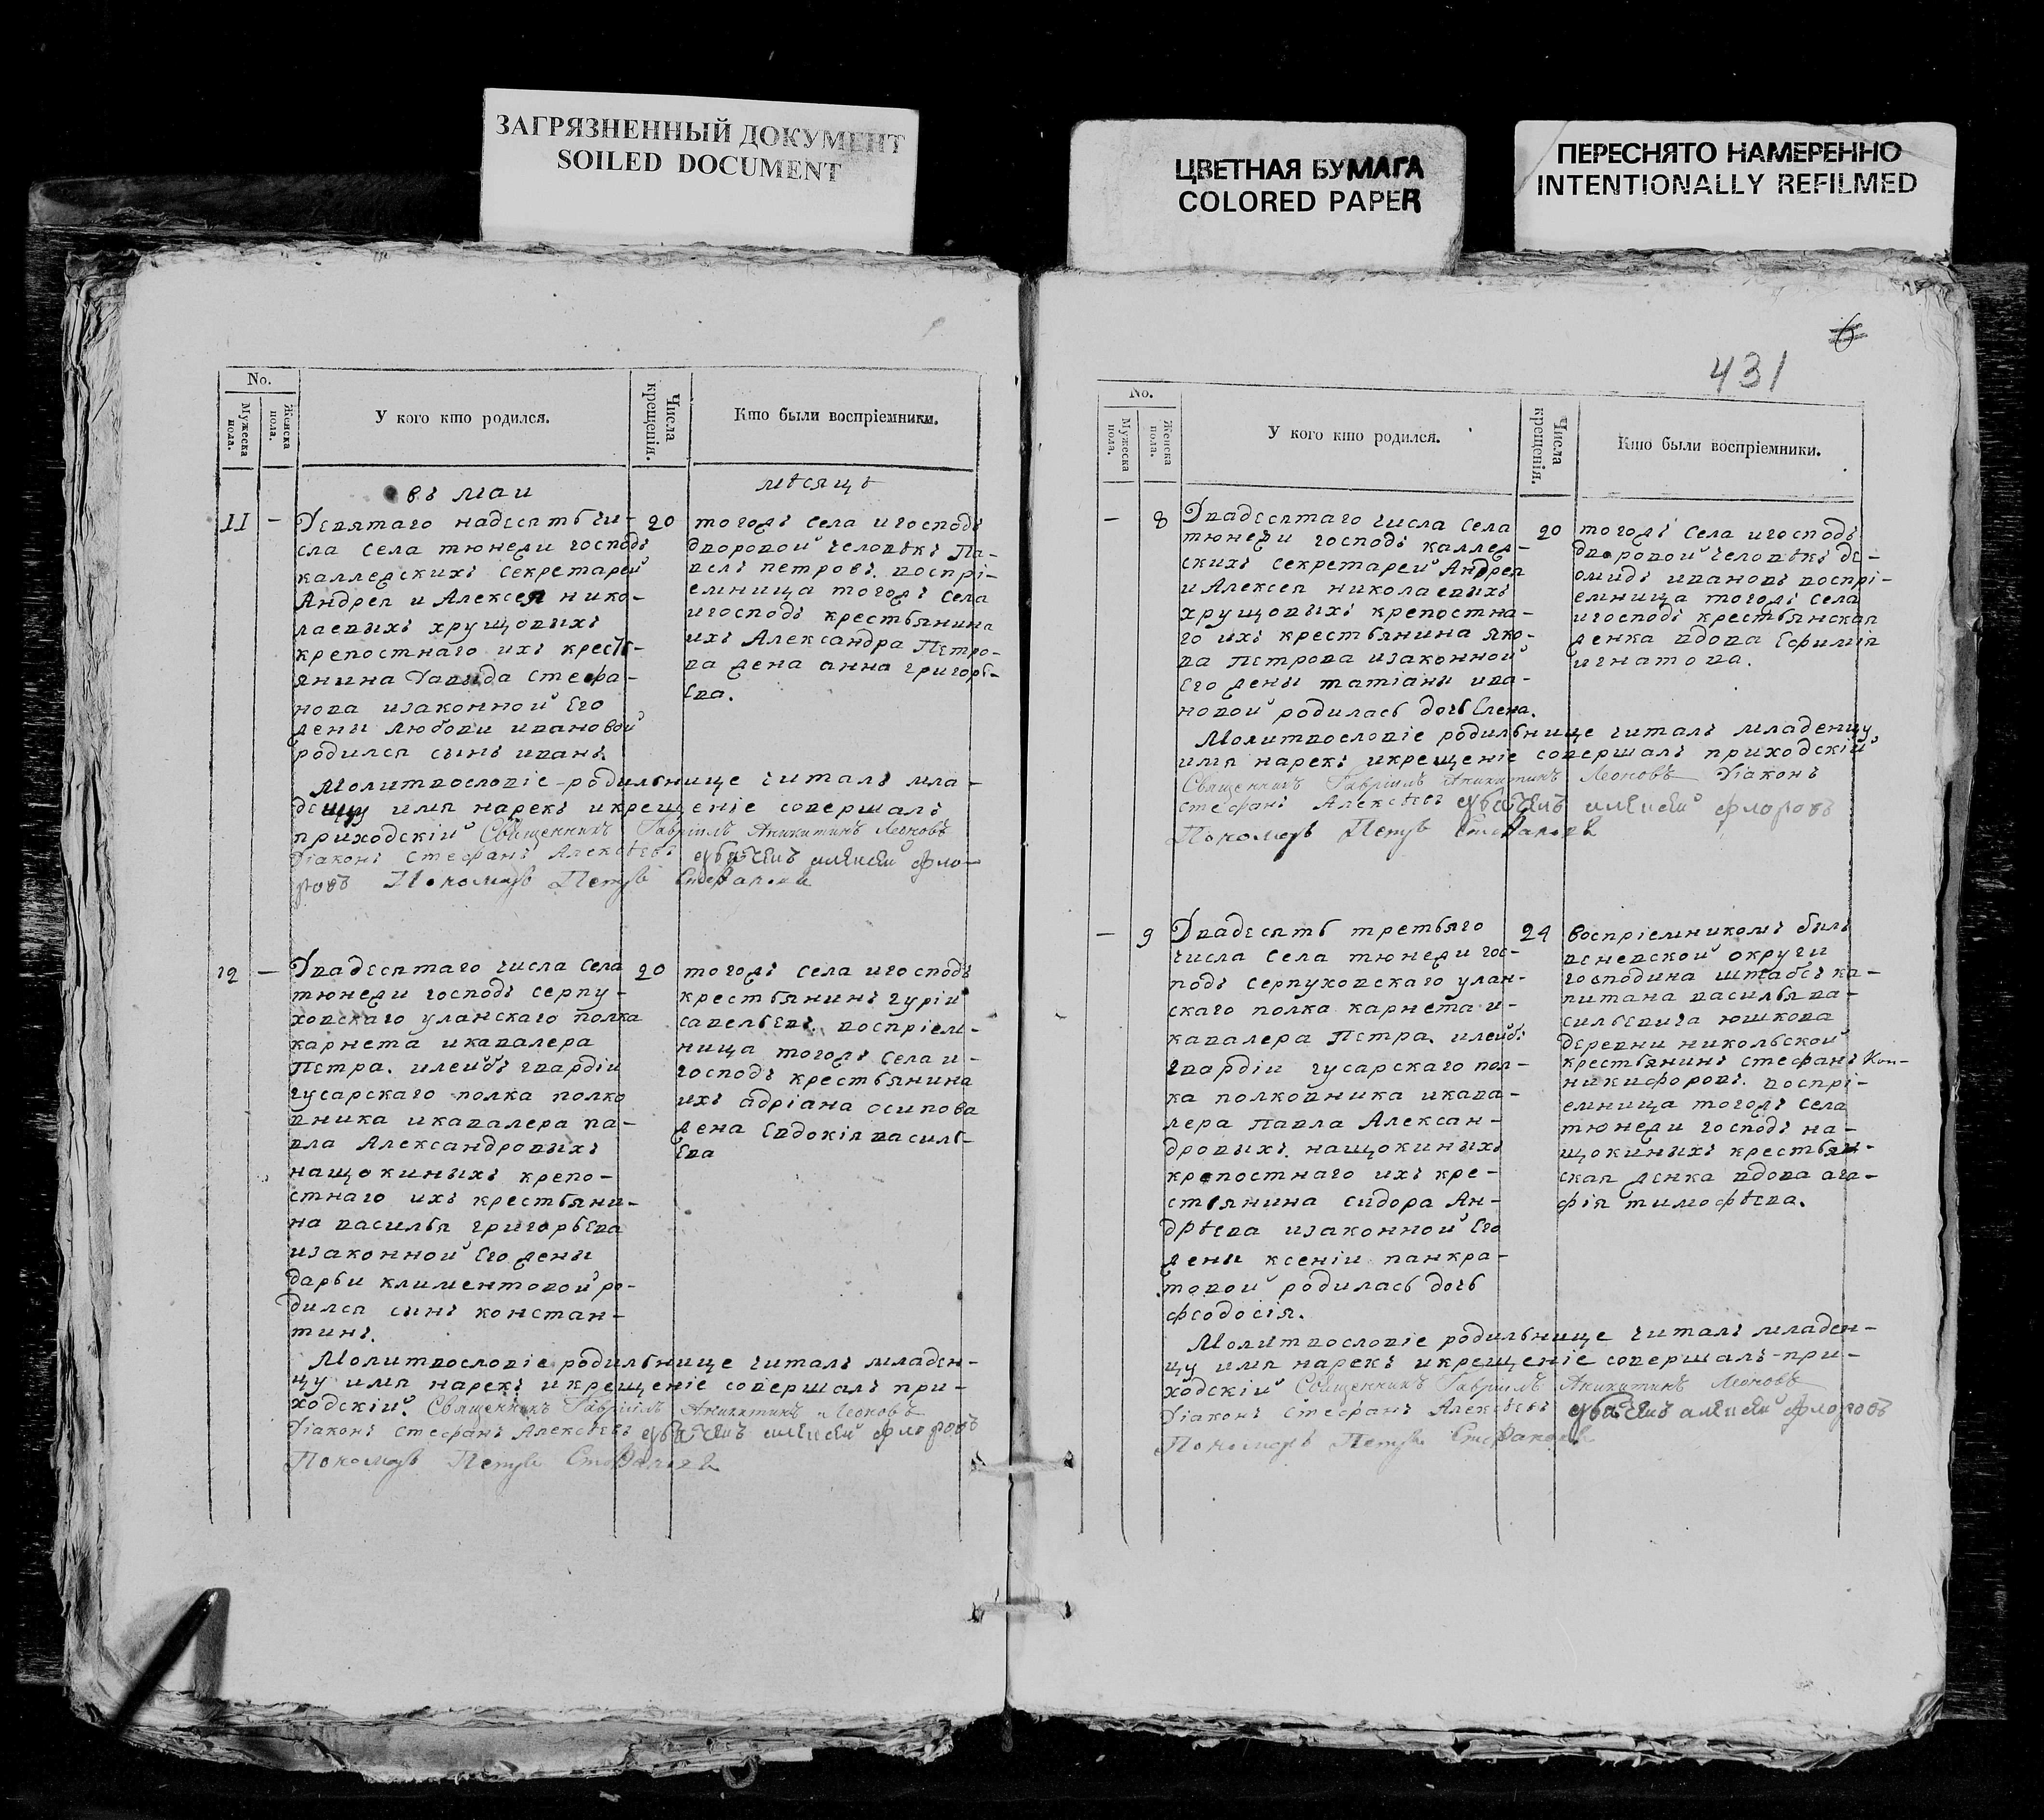 ЗАГРЯЗНЕННЫЙ ДОКУМЕНТ
SOILED DOCUMENT
ЦВЕТНАЯ БУМАГА
COLORED PAPER
ПЕРЕСНЯТО НАМЕРЕННО
INTENTIONALLY REFILMED
No.
Мужеска пола.
Женска пола.
У кого кто родился.
Числа крещенія.
Кто были воспріемники.
въ маи
мѣсяцѣ
11 —
Девятаго надесять чи-
сла села тюнежи господъ
каллежскихъ секретарей
Андрея и Алексея нико-
лаевыхъ хрущовыхъ
крепостнаго ихъ кресть-
янина Давыда стефа-
нова изаконной Его
жены любови ивановой
родился сынъ иванъ.
20
тогожъ села игосподъ
дворовой человѣкъ Па-
велъ петровъ. воспрі-
емница тогожъ села
игосподъ крестьянина
ихъ Александра Петро-
ва жена анна григорь-
Ева.
Молитвословіе родильнице читалъ мла-
денцу имя нарекъ икрещеніе совершалъ
приходскій Священникъ Гавріилъ Аникитинъ Леоновъ
Діаконъ стефанъ Алексѣевъ дьячекъ алексей фло-
ровъ Пономарь Петръ Стефановъ
12 —
Двадесятаго числа села
тюнежи господъ серпу-
ховскаго уланскаго полка
карнета икавалера
Петра. илейбъ гвардіи
гусарскаго полка полко
вника икавалера па-
вла Александровыхъ
нащокиныхъ крепо-
стнаго ихъ крестьяни-
на василья григорьЕва
изаконной Его жены
дарьи климентовой ро-
дился сынъ констан-
тинъ.
20
тогожъ села игосподъ
крестьянинъ гурій
савельЕвъ. воспріем-
ница тогожъ села и-
господъ крестьянина
ихъ адріана осипова
жена Евдокія василь-
Ева
Молитвословіе родильнице читалъ младен-
цу имя нарекъ икрещеніе совершалъ при-
ходскій. Священникъ Гавріилъ Аникитинъ Леоновъ
Діаконъ стефанъ Алексѣевъ дьячекъ алексей флоровъ
Пономарь Петръ Стефановъ
6
431
No.
Мужеска пола.
Женска пола.
У кого кто родился.
Числа крещенія.
Кто были воспріемники.
— 8
Двадесятаго числа села
тюнежи господъ каллеж-
скихъ секретарей Андрея
и Алексея николаевыхъ
хрущовыхъ крепостна-
го ихъ крестьянина яко-
ва петрова изаконной
Его жены татіаны ива-
новой родилась дочь Елена.
20
тогожъ села игосподъ
дворовой человѣкъ де-
омидъ ивановъ воспрі-
емница тогожъ села
игосподъ крестьянская
женка вдова Ефимія
игнатова.
Молитвословіе родильнице читалъ младенцу
имя нарекъ икрещеніе совершалъ приходскій
Священникъ Гавріилъ Аникитинъ Леоновъ Діаконъ
стефанъ Алексѣевъ дьячекъ алексей флоровъ
Пономарь Петръ Стефановъ
— 9
Двадесять третьяго
числа села тюнежи гос-
подъ серпуховскаго улан-
скаго полка карнета и-
кавалера Петра. илейбъ
гвардіи гусарскаго пол-
ка полковника икава-
лера павла Алексан-
дровыхъ. нащокиныхъ
крепостнаго ихъ кре-
стьянина сидора Ан-
дрѣева изаконной Его
жены ксеніи панкра-
товой родилась дочь
феодосія.
24
воспріемникомъ былъ
веневской округи
господина штабсъ ка-
питана василья ва-
сильевича юшкова
деревни никольской
крестьянинъ стефанъ
никифоровъ. воспрі-
емница тогожъ села
тюнежи господъ на-
щокиныхъ крестьян-
ская женка вдова ага-
фія тимофѣева.
Молитвословіе родильнице читалъ младен-
цу имя нарекъ икрещеніе совершалъ при-
ходскій Священникъ Гавріилъ Аникитинъ Леоновъ
Діаконъ стефанъ Алексѣевъ дьячекъ алексей флоровъ
Пономарь Петръ Стефановъ